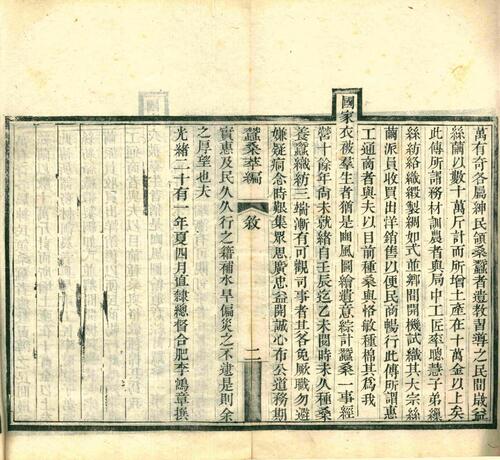 萬有奇各屬紳民領桑蠶者遣教習導之民間歲益
絲繭以數十萬斤計而所增土產在十萬金以上矣
此傳所謂務材訓農者與局中工匠率聰慧子弟繅
絲紡絡織緞製綢如式並鄉間開機試織其大宗絲
繭派員收買出洋銷售以便民商暢行此傳所謂惠
工通商者與夫以目前種桑與恪敏種棉其為我
國家衣被羣生者猶是豳風圖繪遺意綜計蠶桑一事經
營十餘年尚未就緒自壬辰迄乙未閱時未久種桑
養蠶織紡三端漸有可觀司事者其各免厥職勿避
嫌疑痌念時艱集眾思廣忠益開誠心布公道務期
蠶桑萃編
敘
二
實惠及民久久行之藉補水旱偏災之不逮是則余
之厚望也夫
光緒二十有一年夏四月直隸總督合肥李鴻章撰